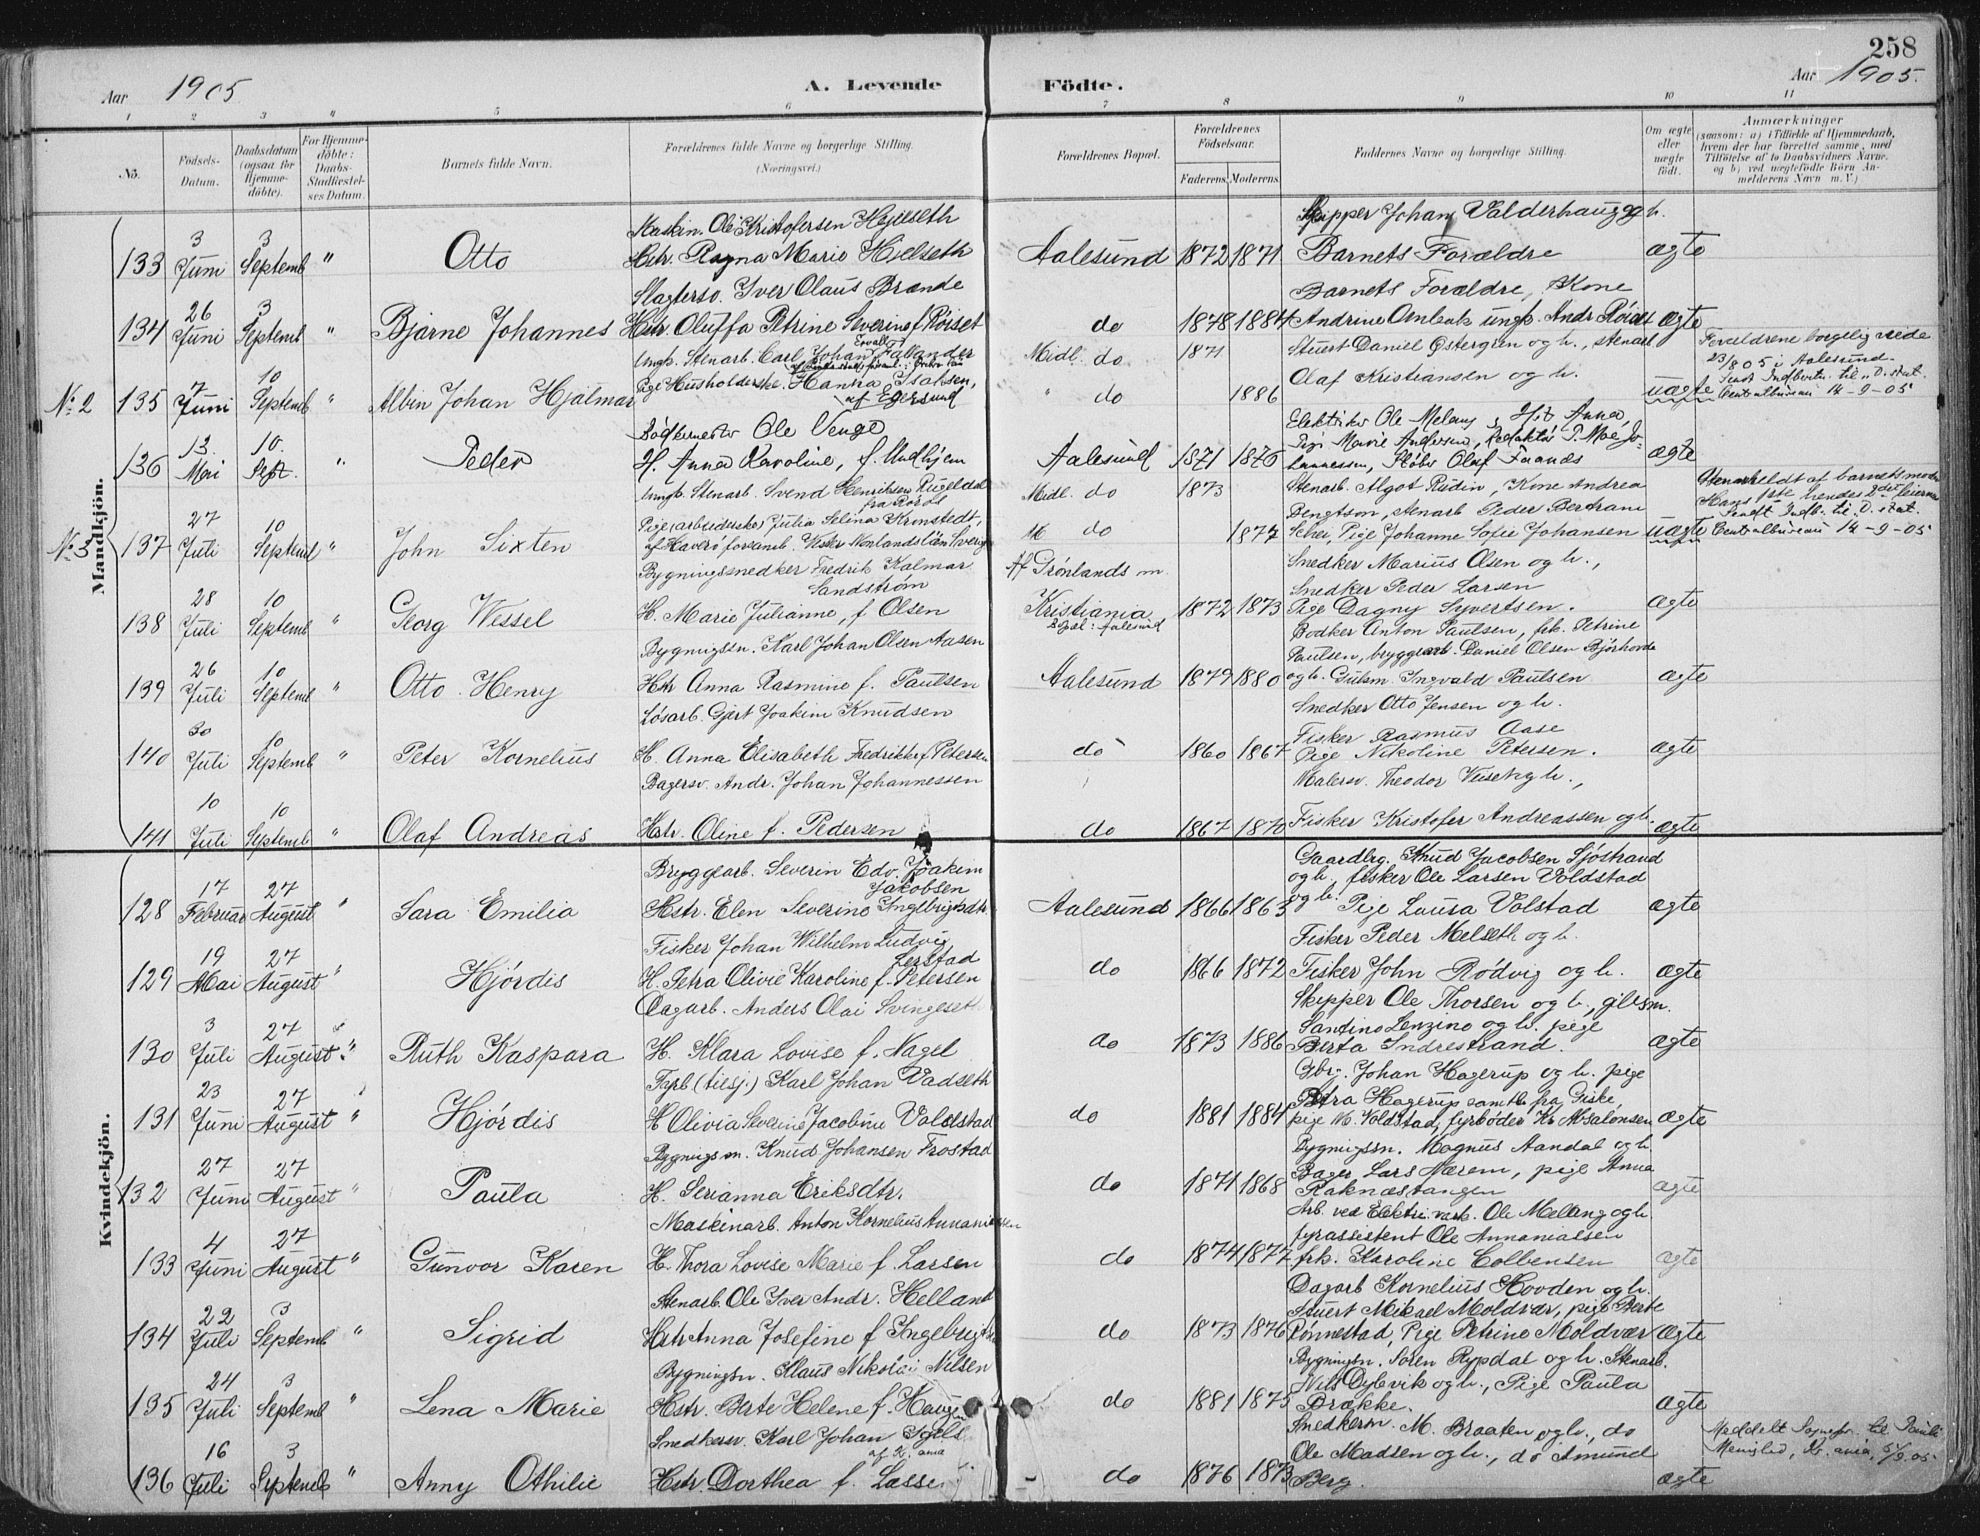 258
Aar 1905.
A. Levende
Födte.
Aar 1905.
1 2 3 4 5 6 7 8 9 10 11
No.
Födsels-Datum.
Daabsdatum (ogsaa for Hjemmedöbte).
For Hjemmedöbte: Daabs-Stadfæstelses Datum.
Barnets fulde Navn.
Forældrenes fulde Navne og borgerlige Stilling. (Næringsvei.)
Forældrenes Bopæl.
Forældrenes Födselsaar.
Faderens. Moderens.
Faddernes Navne og borgerlige Stilling.
Om ægte eller uægte födt.
Anmærkninger
(saasom: a) i Tilfælde af Hjemmedaab, hvem der har forrettet samme, med Tilföielse af to Daabsvidners Navne, og b) ved uægtefödte Börn Anmelderens Navn m. V.)
Mandkjön.
Maskin. Ole Kristofersen Hjelseth
Skipper Johan Valderhaug og h.
133 3 Juni 3 Septemb " Otto Hstr. Ragna Marie Hjelseth Aalesund 1872 1871 Barnets Forældre ægte
Slagtersv. Iver Olaus Brænde
Barnets Forældre, Kone
134 26 Juni 3 Septemb " Bjarne Johannes Hstr. Oluffa Petrine Severine f. Röiset do 1878 1884 Andrine ungk. Andr. Röiset ægte
Ungk. Stenarb. Carl Johan Fallander Midl. do 1871 Stuert Daniel Østergren og h., stenarb
Forældrene borgelig viede 23/8 05 i Aalesund.
№ 2 135 7 Juni 10 Septemb " Albin Johan Hjalmar Pige Husholderske Hanna Isaksen, af Egersund " do 1886 Olaf Kristiansen og h. uægte
Sendt Indberetn. til D. stat. Centralbureau 14-9-05
Bödkermester Ole Venge
Elektriker Ole Melang, H. Anna,
136 13. Mai 10. Sept. " Peder H. Anna Karoline, f. Undhjem Aalesund 1871 1876 Pige Marie Andersen, Redaktör P. Moe Johannessen, Olaf Fraanæs ægte
Ungk. Stenarb. Svend Henriksen Rugeldal fra Röros Midl. do 1873 Stenarb. Algot Rudin, Kone Andrea
Bengtson, stenarb Peder Bertram
№ 3 137 27 Juli 10 Septemb " John Sixten Pige (arbeiderske) Julia Selina Kronstedt, do 1877 Schei, Pige Johanne Sofie Johansen uægte
Hans 1ste hendes 2det leierm. Sendt Indb. til D. stat. Centralbureau 14-9-05
Bygningssnedker Fredrik Kalmar Sandström
Af Grønlands m.
Snedker Marius Olsen og h.,
Snedker Peder Larsen
138 28 Juli 10 Septemb " Georg Wessel H. Marie Julianne, f. Olsen Kristiania Bopæl: Aalesund 1872 1873 Pige Dagny Syvertsen. ægte
Bygningssn. Karl Johan Olsen Aasen
Bodker Anton Paulsen, frk. Petrine
Paulsen, bryggearb. Daniel Olsen Björhovde
139 26 Juli 10 Septemb " Otto Henry Hstr Anna Rasmine f. Paulsen Aalesund 1879 1880 og h. Gulsm. Ingvald Paulsen ægte
Løsarb. Gjert Joakim Knudsen
Snedker Otto Jensen og h.
Fisker Rasmus Aase
140 30 Juli 10 Septemb " Peter Kornelius H. Anna Elisabeth Fredrikke f. Petersen do 1860 1867 Pige Nikoline Petersen. ægte
Bagersv. Andr. Johan Johannessen
Malersv. Theodor og h.,
141 10 Juli 10 Septemb " Olaf Andreas Hstr. Oline f. Pedersen do 1867 1870 Fisker Kristofer Andreassen og h. ægte
Kvindekjön.
Bryggearb. Severin Edv. Joakim Jakobsen
Gaardbrg. Knud Jacobsen Sjöstrand
og h., fisker Ole Larsen Voldstad
128 17 Februar 27 August " Sara Emilia Hstr. Elen Severine Ingebrigtsdtr Aalesund 1866 1863 og h. Pige Lausa Volstad ægte
Fisker Johan Wilhelm Ludvig Lerstad
Fisker Peder Melseth og h.
129 19 Mai 27 August " Hjördis H. Petra Olivie Karoline f. Petersen do 1866 1872 Fisker John Rödvig og h. ægte
Dagarb. Anders Olai Svingeset
Skipper Ole Thorsen og h., gibsm.
Santino Lenzino og h. pige
130 3 Juli 27 August " Ruth Kaspara H. Klara Lovise f. Nagel do 1873 1886 Berta Indrestrand. ægte
Faprb (tilsj.) Karl Johan Vadseth
Gbrg. Johan Hagerup og h. pige
Petra Hagerup samtl. fra Giske,
131 23 Juni 27 August " Hjördis H Olivia Severine Jacobine Voldstad do 1881 1884 pige M. Voldstad, fyrböder K. Absalonsen ægte
Bygnigs m. Knud Johansen Frostad
Bygnigssn. Magnus Aandal og h.
Bager Lars Nærem, pige Anna
132 27 Juni 27 August " Paula H. Serianna Eriksdtr. do 1871 1868 Raknæstangen ægte
Maskinarb. Anton Kornelius Annaniassen
Arb. ved Elektri. værk. Ole Melling og h
fyrassistent Ole Annaniassen
133 4 Juni 27 August " Gunvor Karen H. Thora Lovise Marie f. Larsen do 1874 1877 frk. Karoline Colbensen ægte
Stenarb. Ole Iver Andr. Helland
Dagarb Kornelius Hovden og h.
Stuert Mikael Moldvær, pige Berte
134 22 Juli 3 Septemb " Sigrid Hstr Anna Josefine f. Ingebrigtsen do 1873 1876 Rönnestad, Pige Petrine Moldvær ægte
Bygningsn. Klaus Nikolai Nilsen
Bygningsn. Sören Rypdal og h. Stenarb.
Nils Dybvik og h., Pige Paula
135 24 Juli 3 Septemb " Lena Marie Hstr. Berte Helene f. Haugen do 1881 1875 Brække. ægte
Snedkersv. Karl Johan af K. ania
Snedkerm. M. Braaten og h., do
Ole Madsen og h., do Amund
136 16 Juli 3 Septemb " Anny Othilie Hstr. Dorthea f. Lasse do 1876 1873 Berg. ægte
Meddelt Sognepr. til Pauli Menighed, K. ania, 5/9.05